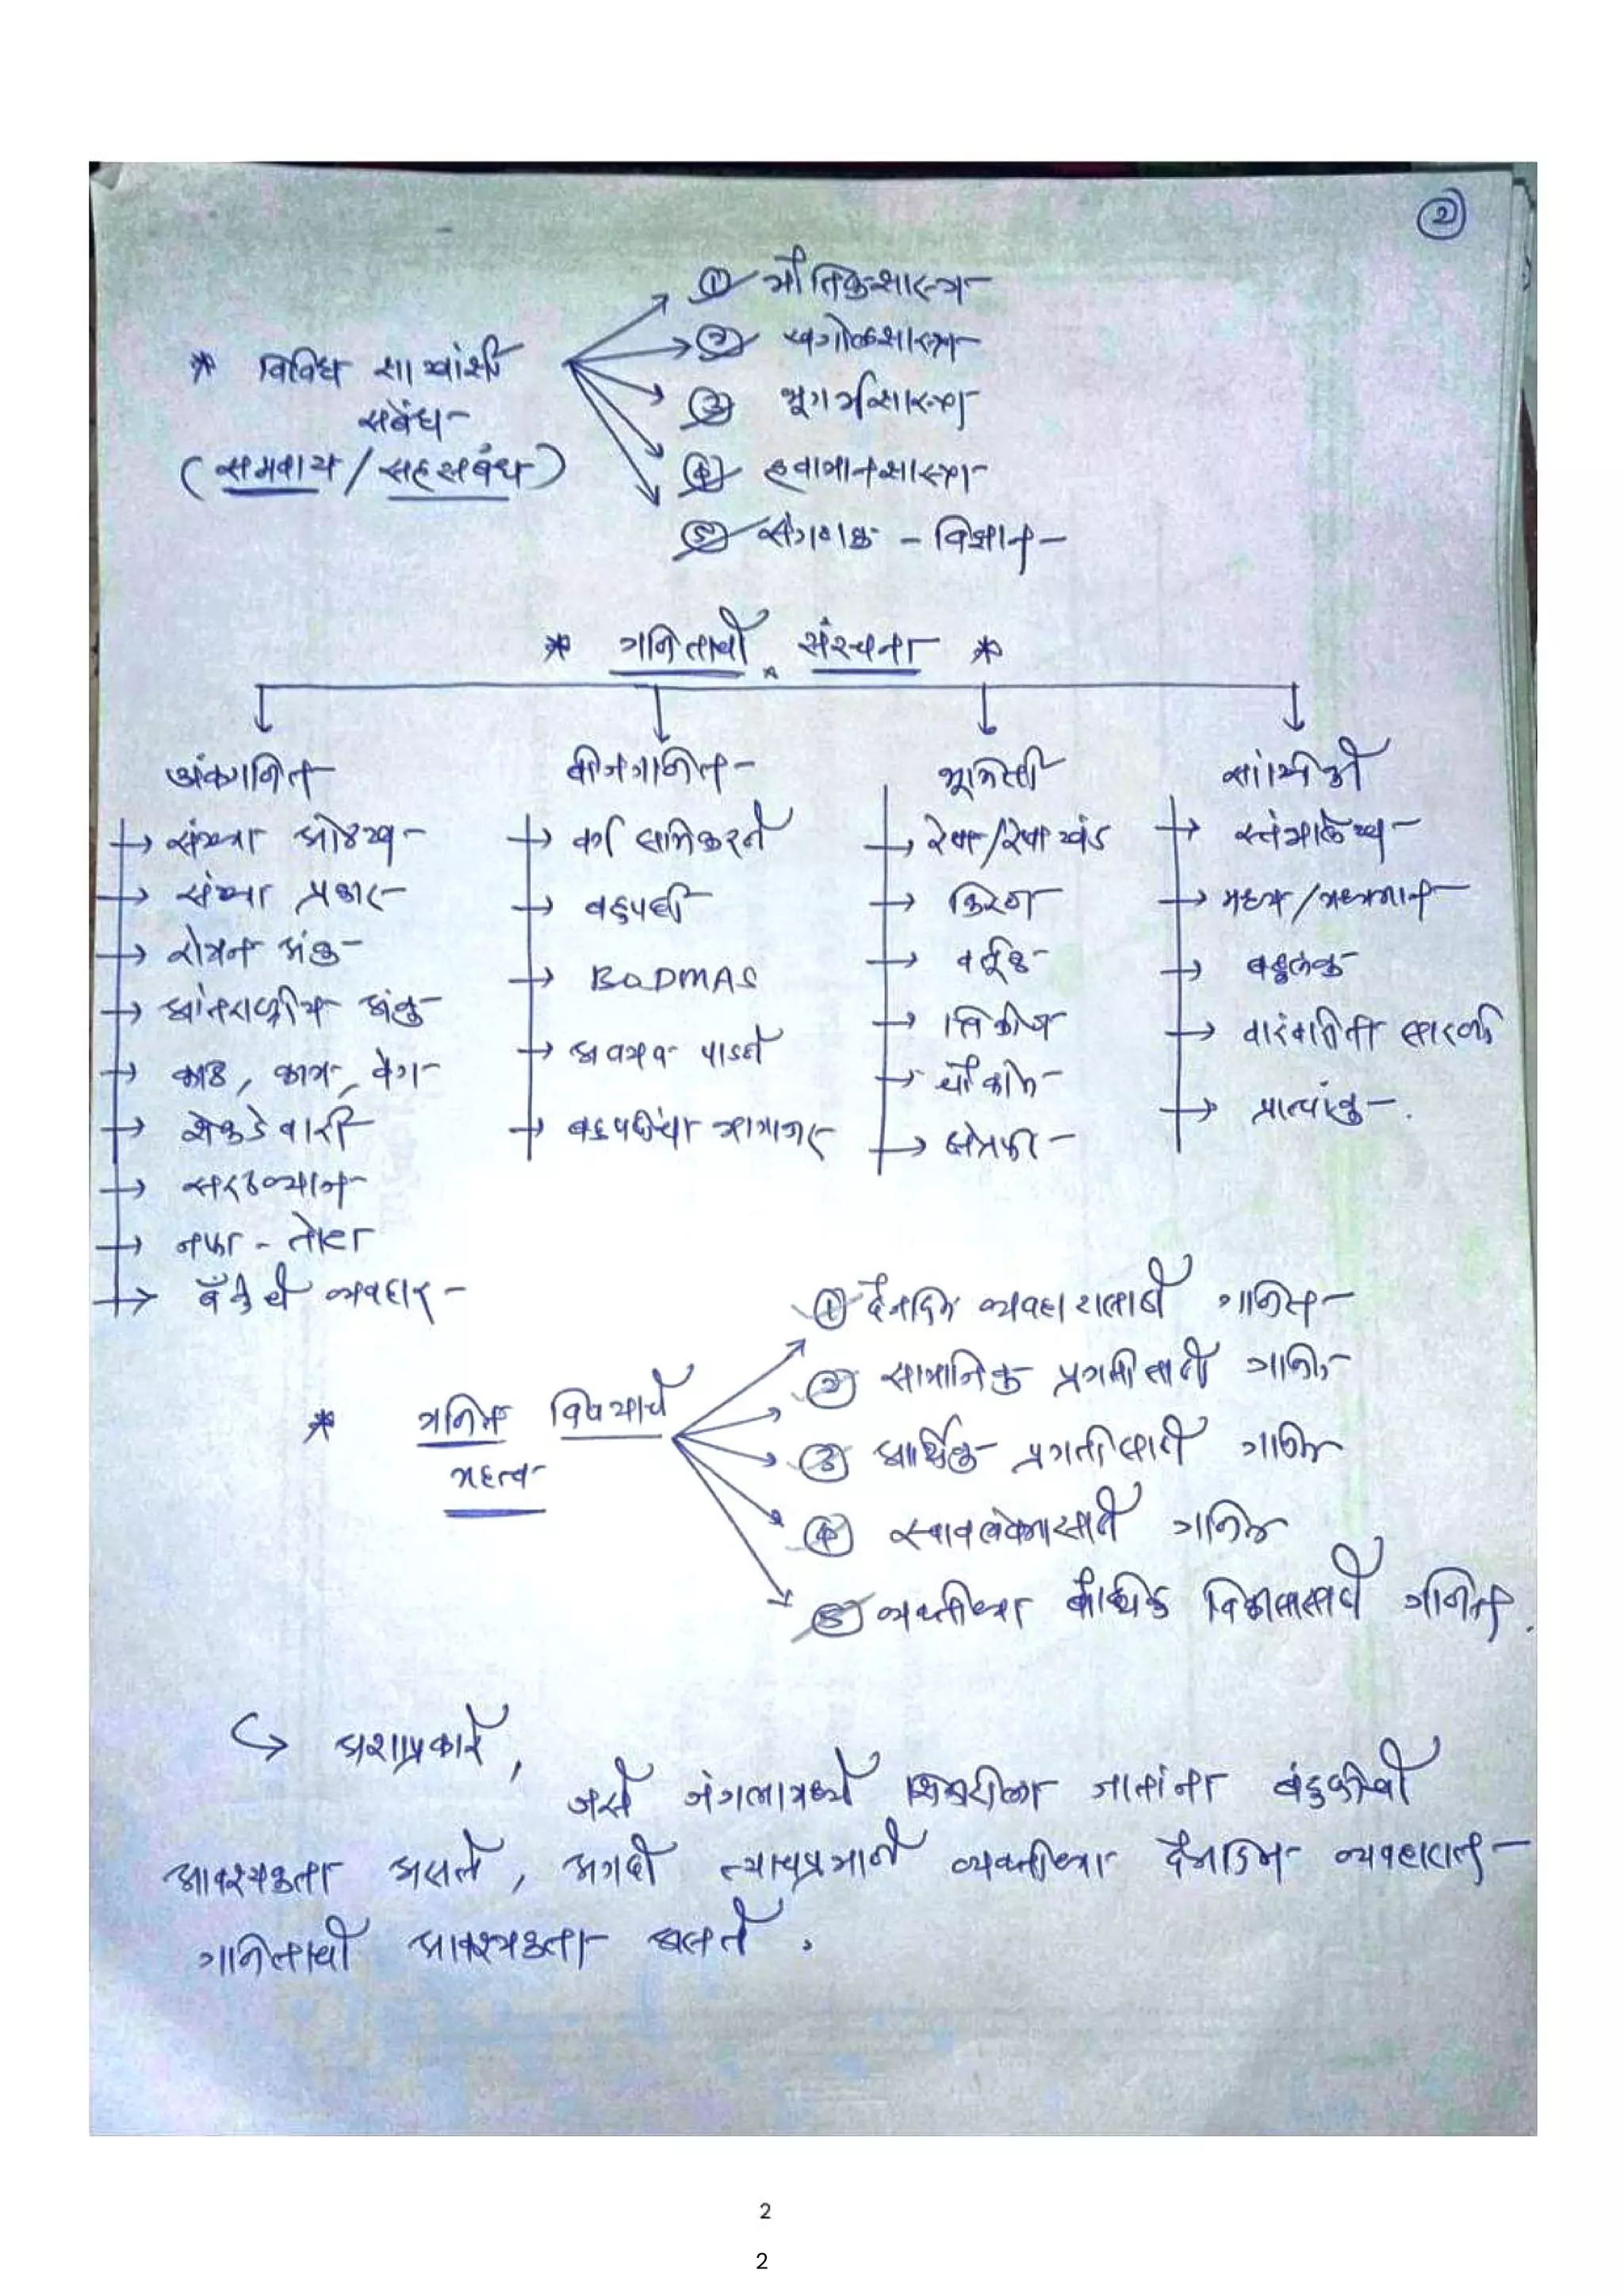 २
① भौतिकशास्त्र
② खगोलशास्त्र
* विविध शाखांशी
③ भूगर्भशास्त्र
संबंध
(समवाय / सहसंबंध)
④ हवामानशास्त्र
⑤ संगणक - विज्ञान
* गणिताची संरचना *
अंकगणित बीजगणित भूमिती सांख्यिकी
→ संख्या ओळख → वर्ग समिकरणे → रेषा/रेषाखंड → स्तंभालेख
→ संख्या प्रकार → बहुपदी → किरण → मध्य/मध्यमान
→ रोमन अंक → BODMAS → वर्तूळ → बहुलक
→ आंतराष्ट्रीय अंक → अवयव पाडणे → त्रिकोण → वारंवारिता सारणी
→ काळ, काम, वेग → बहुपदींचा भागाकार → चौकोन → प्राप्तांक.
→ शेकडेवारी → क्षेत्रफळ
→ सरळव्याज
→ नफा - तोटा
→ बँकेचे व्यवहार
① दैनंदिन व्यवहारासाठी गणित
② सामाजिक प्रगतीसाठी गणित
* गणित विषयाचे
③ आर्थिक प्रगतीसाठी गणित
महत्व
④ स्वावलंबनासाठी गणित
⑤ व्यक्तीच्या बौध्दिक विकासासाठी गणित.
↪ अशाप्रकारे,
जसे जंगलामध्ये शिकारीला जातांना बंदुकीची
आवश्यकता असते, अगदी त्याचप्रमाणे व्यक्तीच्या दैनंदिन व्यवहारात
गणिताची आवश्यकता असते.
2
2